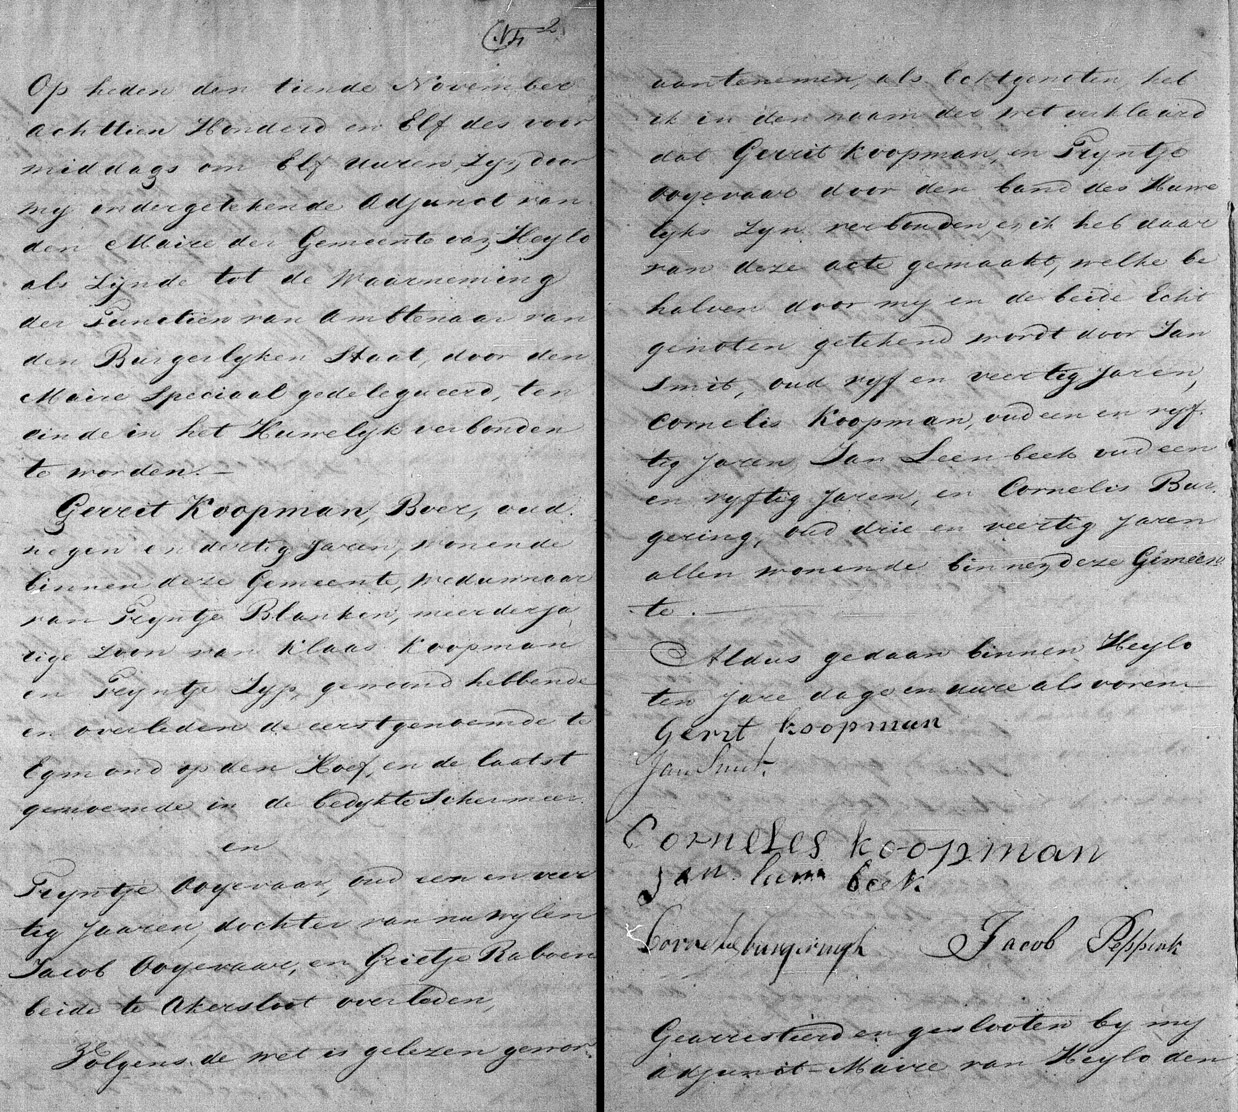 N 2
Op heden den tiende November
achttien Honderd en Elf des voor
middags om Elf uuren, Zyn door
my ondergetekende Adjunct van
den Maire der Gemeente van Heylo
als Zynde tot de Waarneming
der Functien van Ambtenaar van
den Burgerlyken Staat, door den
Maire Speciaal gedelegueerd, ten
einde in het Huwelyk verbonden
te worden. —
Gerrit Koopman, Boer, oud
negen en dertig Jaren, wonende
binnen deze Gemeente, weduwnaar
van Tryntje Blanken, meerderja
rige Zoon van Klaas Koopman
en Tryntje Zyp, gewoond hebbende
en overleden de eerstgenoemde te
Egmond op den Hoef, en de laatst
genoemde in de bedykte Schermeer
en
Tryntje Oogevaar, oud een en veer
tig Jaaren, dochter van nu wylen
Jacob Oogevaar, en Grietje Raboen
beide te Akersloot overleden,
Volgens de wet is gelezen gewor
aantenemen, als Echtgenoten, heb
ik in den naam der wet verklaard
dat Gerrit Koopman, en Tryntje
Oogevaar door den band des Huwe
lyks Zyn verbonden en ik heb daar
van deze acte gemaakt, welke be
halven door my en de beide Echt
genoten getekend wordt door Jan
Smit, oud vyf en veertig Jaren,
Cornelis Koopman, oud een en vyf
tig Jaren Jan Leenbeek oud een
en vyftig Jaren, en Cornelis Bur
gering, oud drie en veertig Jaren
allen wonende binnen deze Gemeen
te.
Aldus gedaan binnen Heylo
ten jare dage en ure als voren
Gerrit koopman
Jan Smit
Cornelis koopman
Jan beek
Cornelis burgeringh Jacob Peppink
Gearresteerd en geslooten by my
Adjunct-Maire van Heylo den